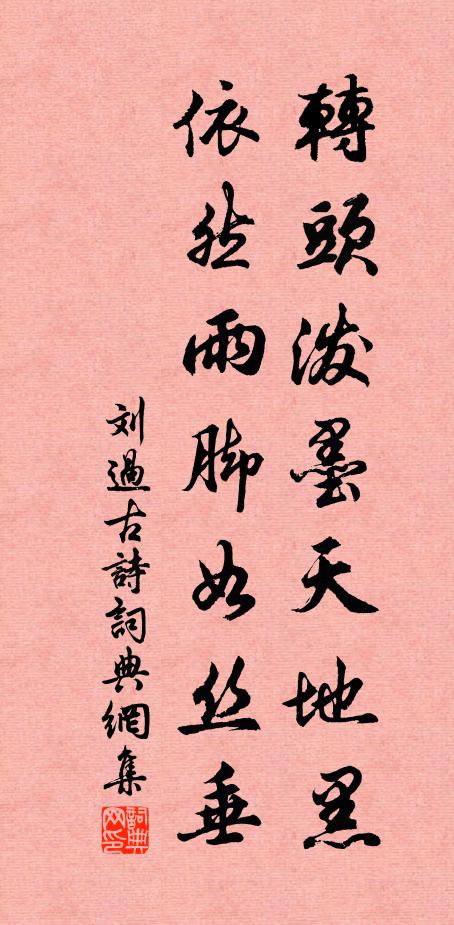 轉頭潑墨天地黑
依然雨脚如丝垂
刘過古詩詞典網集
詞典网印